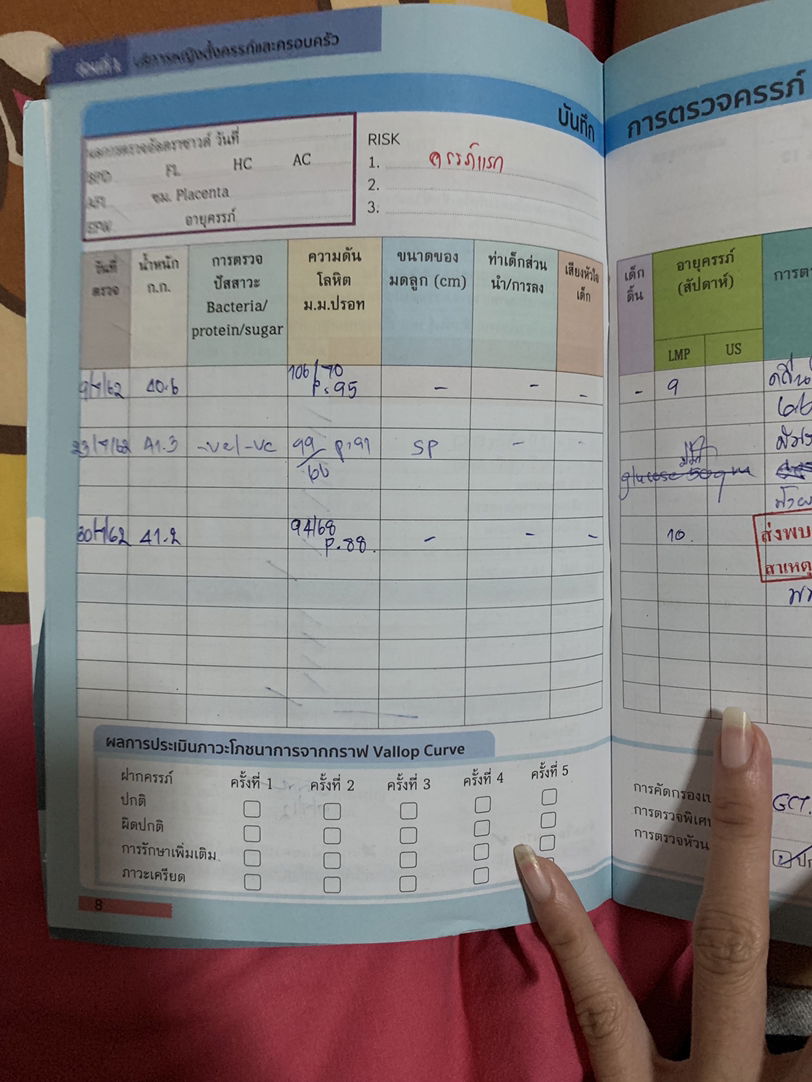 ส่วนที่ 1 บริการหญิงตั้งครรภ์และครอบครัว
บันทึก
การตรวจครรภ์
ผลการตรวจอัลตราซาวด์ วันที่
BPD FL HC AC
AFI ซม. Placenta
EFW อายุครรภ์
RISK
1. ครรภ์แรก
2.
3.
วันที่ตรวจ
น้ำหนัก ก.ก.
การตรวจ
ปัสสาวะ
Bacteria/
protein/sugar
ความดัน
โลหิต
ม.ม.ปรอท
ขนาดของ
มดลูก (cm)
ท่าเด็กส่วน
นำ/การลง
เสียงหัวใจ
เด็ก
เด็ก
ดิ้น
อายุครรภ์
(สัปดาห์)
LMP US
การตร
9/7/62 40.6 106/70 P.95 - - - - 9
23/7/62 41.3 -ve/-ve 99/66 P.91 SP - -
glucose 50 gm
30/7/62 41.2 94/68 P.88. - - - 10.
ส่งพบ
สาเหตุ
ผลการประเมินภาวะโภชนาการจากกราฟ Vallop Curve
ฝากครรภ์ ครั้งที่ 1 ครั้งที่ 2 ครั้งที่ 3 ครั้งที่ 4 ครั้งที่ 5
ปกติ
ผิดปกติ
การรักษาเพิ่มเติม
ภาวะเครียด
การคัดกรองเบ
การตรวจพิเศษ
การตรวจหัวน
GCT.
8